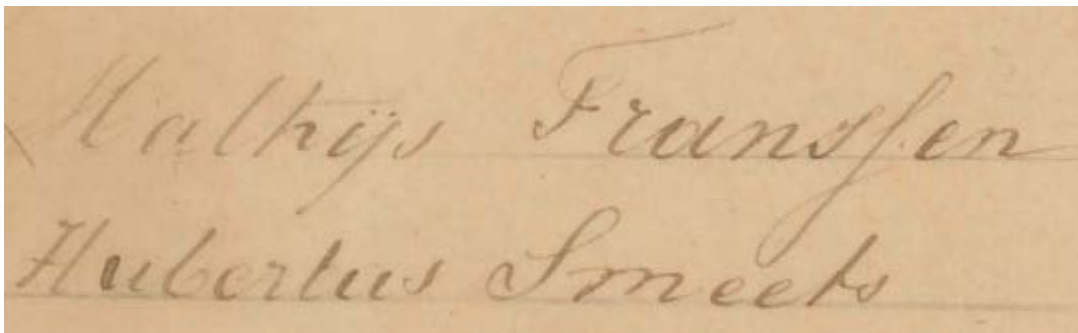 Mathijs Franssen
Hubertus Smeets